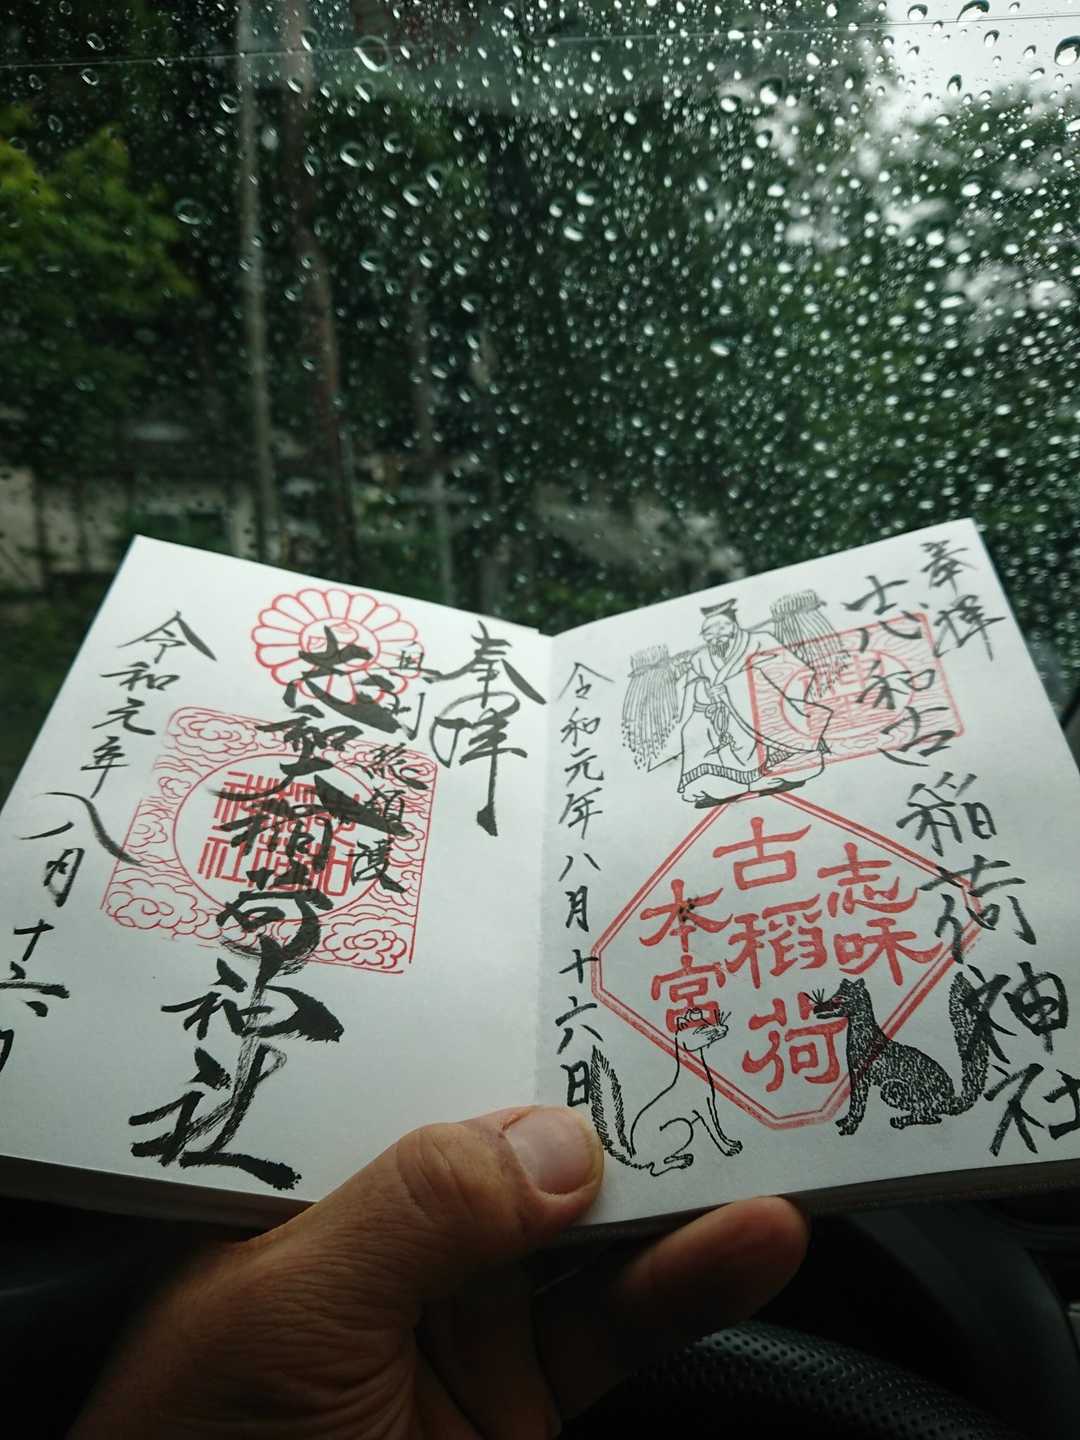 奉拝
志和古稲荷神社
古稲荷
本宮
令和元年八月十六日
奉拝
奥州
志和稲荷神社
令和元年八月十六